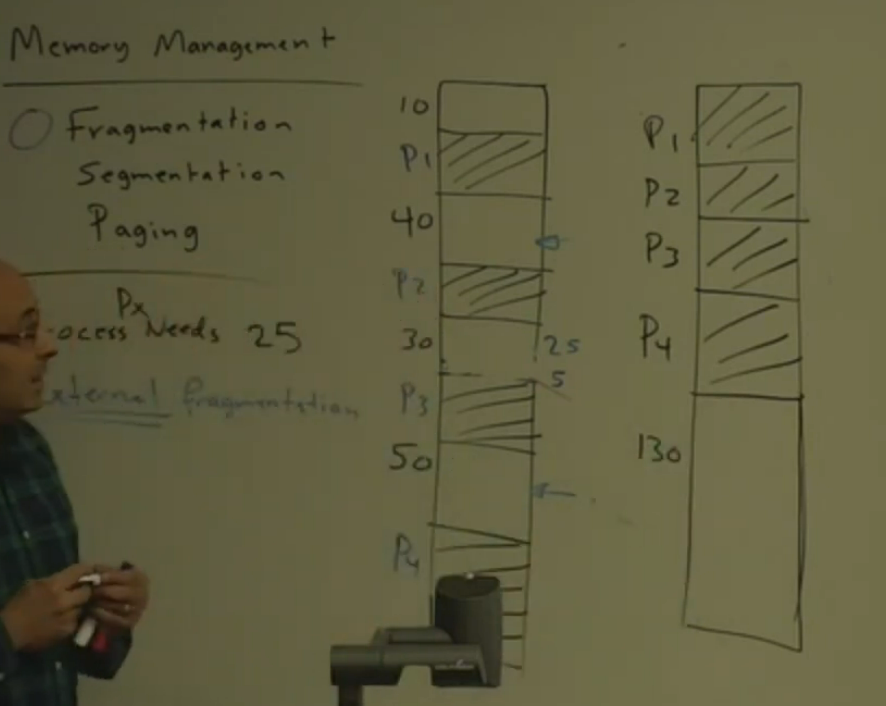 Memory Management
Fragmentation
Segmentation
Paging
Px
ocess Needs 25
xternal fragmentation
10
P1
40
P2
30
25
5
P3
50
P4
P1
P2
P3
P4
130